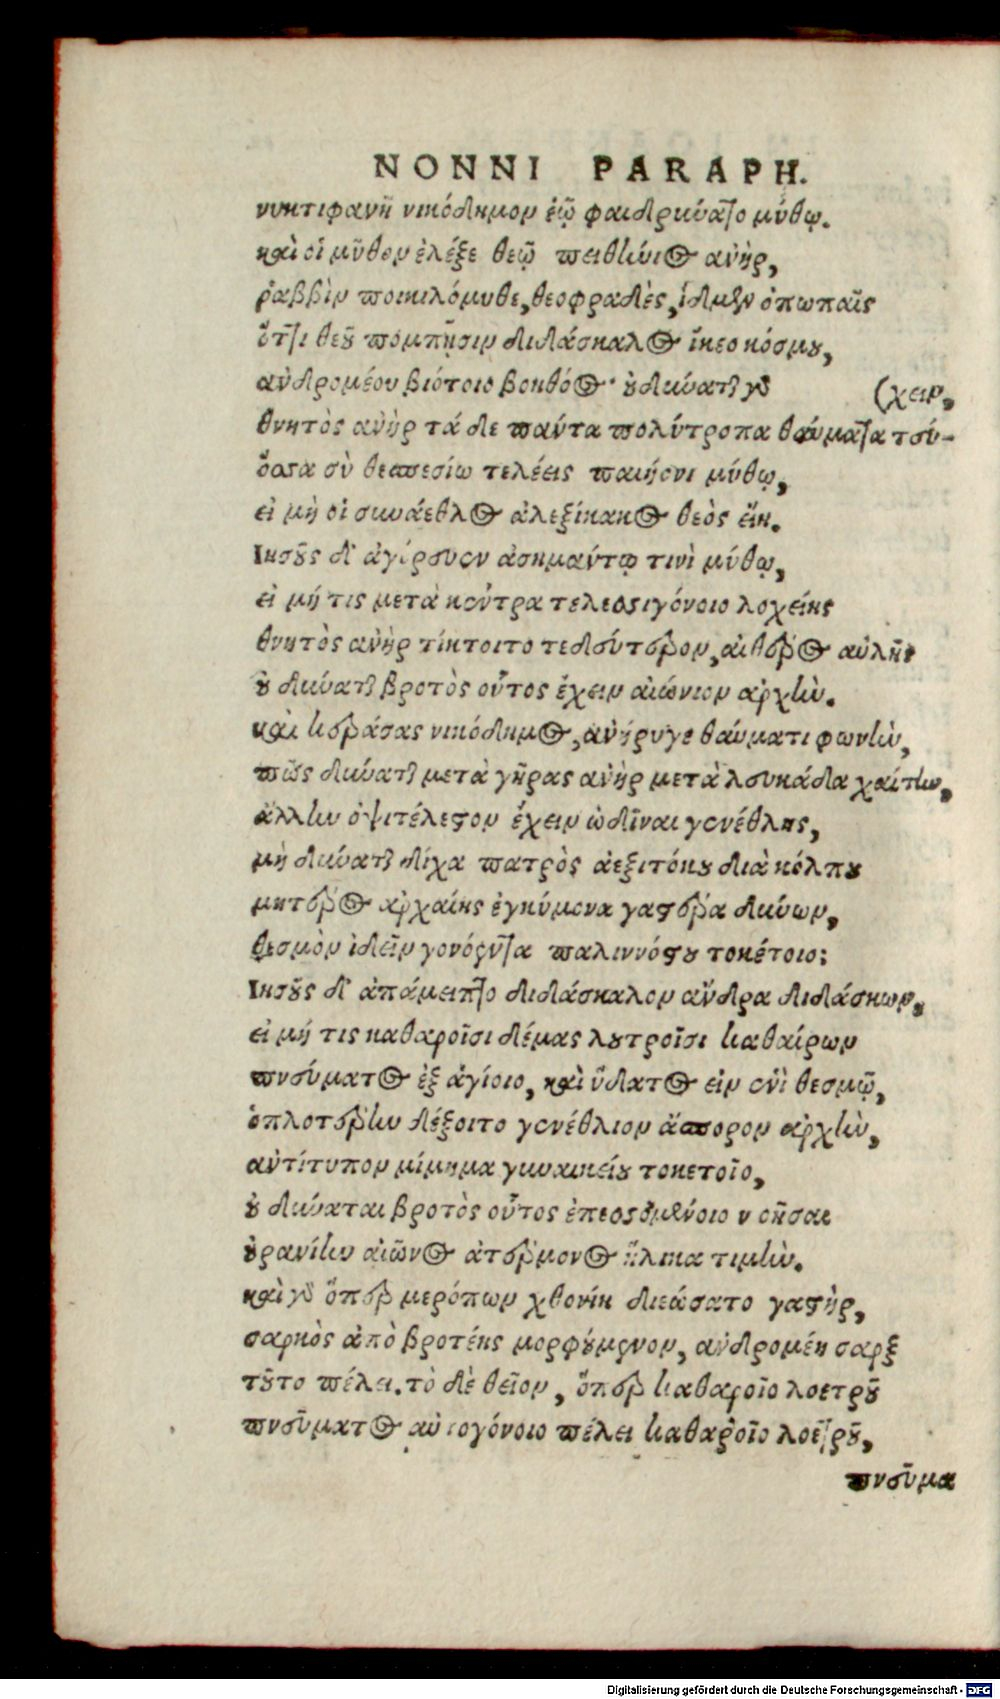 NONNI PARAPH.
νυκτιφανῆ νικόδημον ἑῷ φαιδρύνατο μύθῳ.
καὶ οἱ μῦθον ἔλεξε θεῷ πειθήνιος ἀνὴρ,
ῥαββὶν ποικιλόμυθε, θεοφραδὲς, ἴδμεν ὀπωπαῖς
ὅττι θεοῦ πομπῇσιν διδάσκαλος ἵκεο κόσμου,
ἀνδρομέου βιότοιο βοηθός· οὐ δύναται γὰρ (χειν,
θνητὸς ἀνὴρ τά δε πάντα πολύτροπα θαύματα τεύ-
ὅσσα σὺ θεσπεσίω τελέεις παιήονι μύθῳ,
εἰ μὴ οἱ συνάεθλος ἀλεξίκακος θεὸς εἴη.
Ιησοῦς δ' ἀγόρευεν ἀσημάντῳ τινὶ μύθῳ,
εἰ μή τις μετὰ κέντρα τελεσσιγόνοιο λοχείης
θνητὸς ἀνὴρ τίκτοιτο τεδεύτερον, αἰθέρος αὐλῆς
οὐ δύναται βροτὸς οὗτος ἔχειν αἰώνιον ἀρχήν.
καὶ κεράσας νικόδημος, ἀνήρυγε θαύματι φωνὴν,
πῶς δύναται μετὰ γῆρας ἀνὴρ μετὰ λευκάδα χαίτην,
ἄλλην ὀψιτέλεστον ἔχειν ὠδῖναι γενέθλης,
μὴ δύναται δίχα πατρὸς ἀεξιτόκου διὰ κόλπου
μητέρος ἀρχαίης ἐγκύμονα γαστέρα δύνων,
θεσμὸν ἰδεῖν γονόεντα παλιννόστου τοκέτοιο;
Ιησοῦς δ' ἀπάμειπτο διδάσκαλον ἄνδρα διδάσκων,
εἰ μή τις καθαροῖσι δέμας λουτροῖσι καθαίρων
πνεύματος ἐξ ἁγίοιο, καὶ ὕδατος εἰν ἑνὶ θεσμῷ,
ὁπλοτέρην δέξοιτο γενέθλιον ἄσπορον ἀρχὴν,
ἀντίτυπον μίμημα γυναικείου τοκετοῖο,
οὐ δύναται βροτὸς οὗτος ἐπεσσομένοιο νοῆσαι
οὐρανίην αἰῶνος ἀτέρμονος ἥλικα τιμήν.
καὶ γὰρ ὅπερ μερόπων χθονίη διεάσατο γαστὴρ,
σαρκὸς ἀπὸ βροτέης μορφούμενον, ἀνδρομέη σαρξ
τοῦτο πέλει. τὸ δὲ θεῖον, ὅπερ καθαροῖο λοετροῦ
πνεύματος αὐτογόνοιο πέλει καθαροῖο λοετροῦ,
πνεῦμα
Digitalisierung gefördert durch die Deutsche Forschungsgemeinschaft - DFG